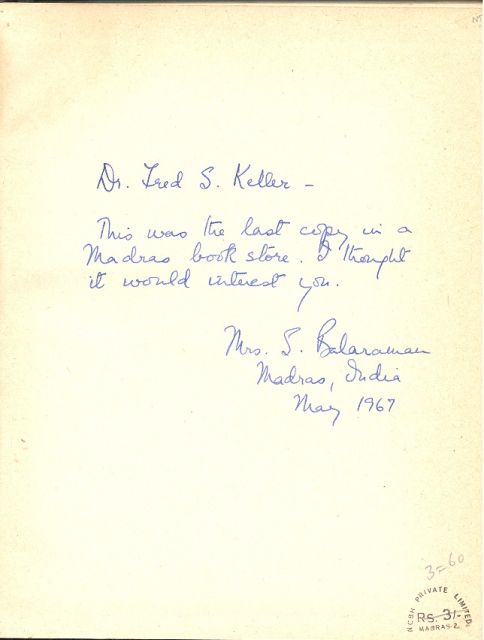 Dr. Fred S. Keller -
This was the last copy in a
Madras book store. I thought
it would interest you.
Mrs. S. Balaraman
Madras, India
May 1967
3=60
NCBH PRIVATE LIMITED.
RS. 3/-
MADRAS-2.